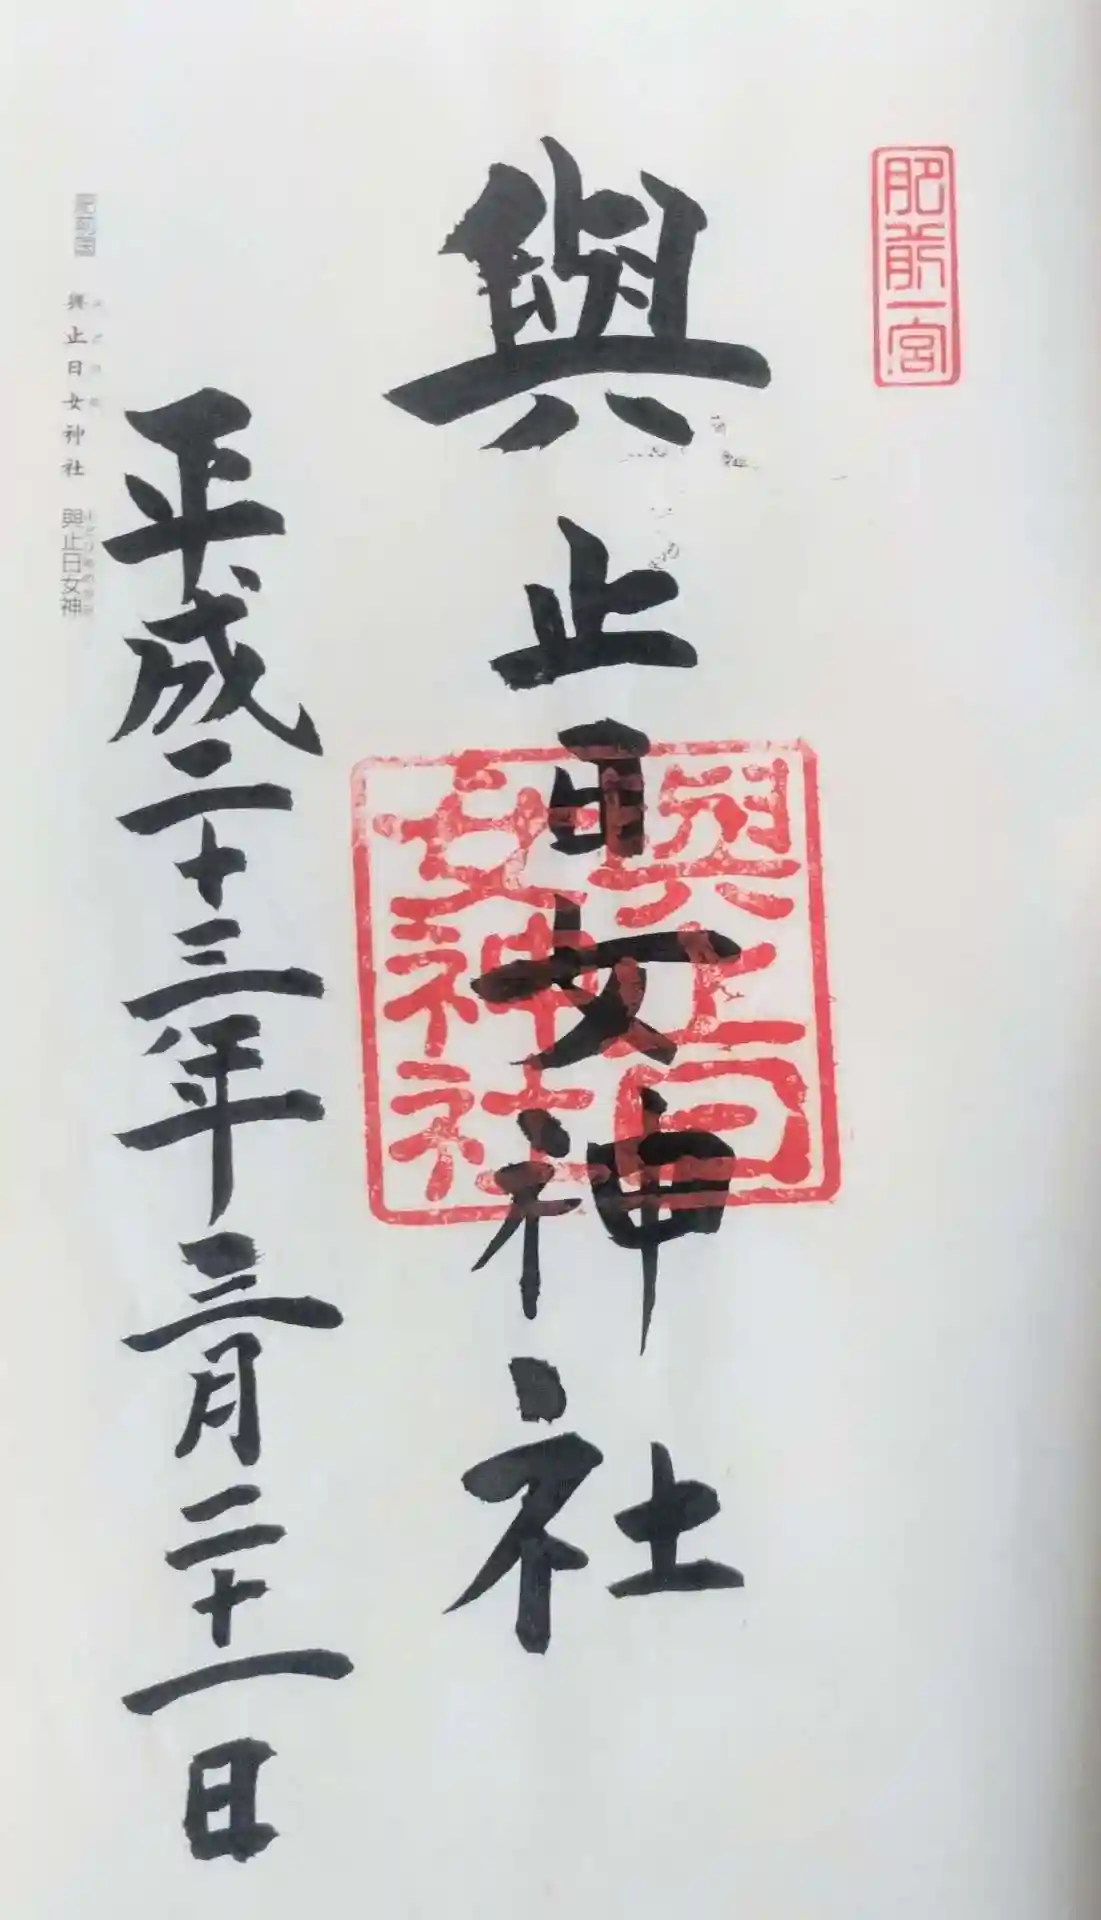 肥前一宮
與止日女神社
與止日女神社
平成二十三年三月二十一日
肥前国 與止日女神社 與止日女神